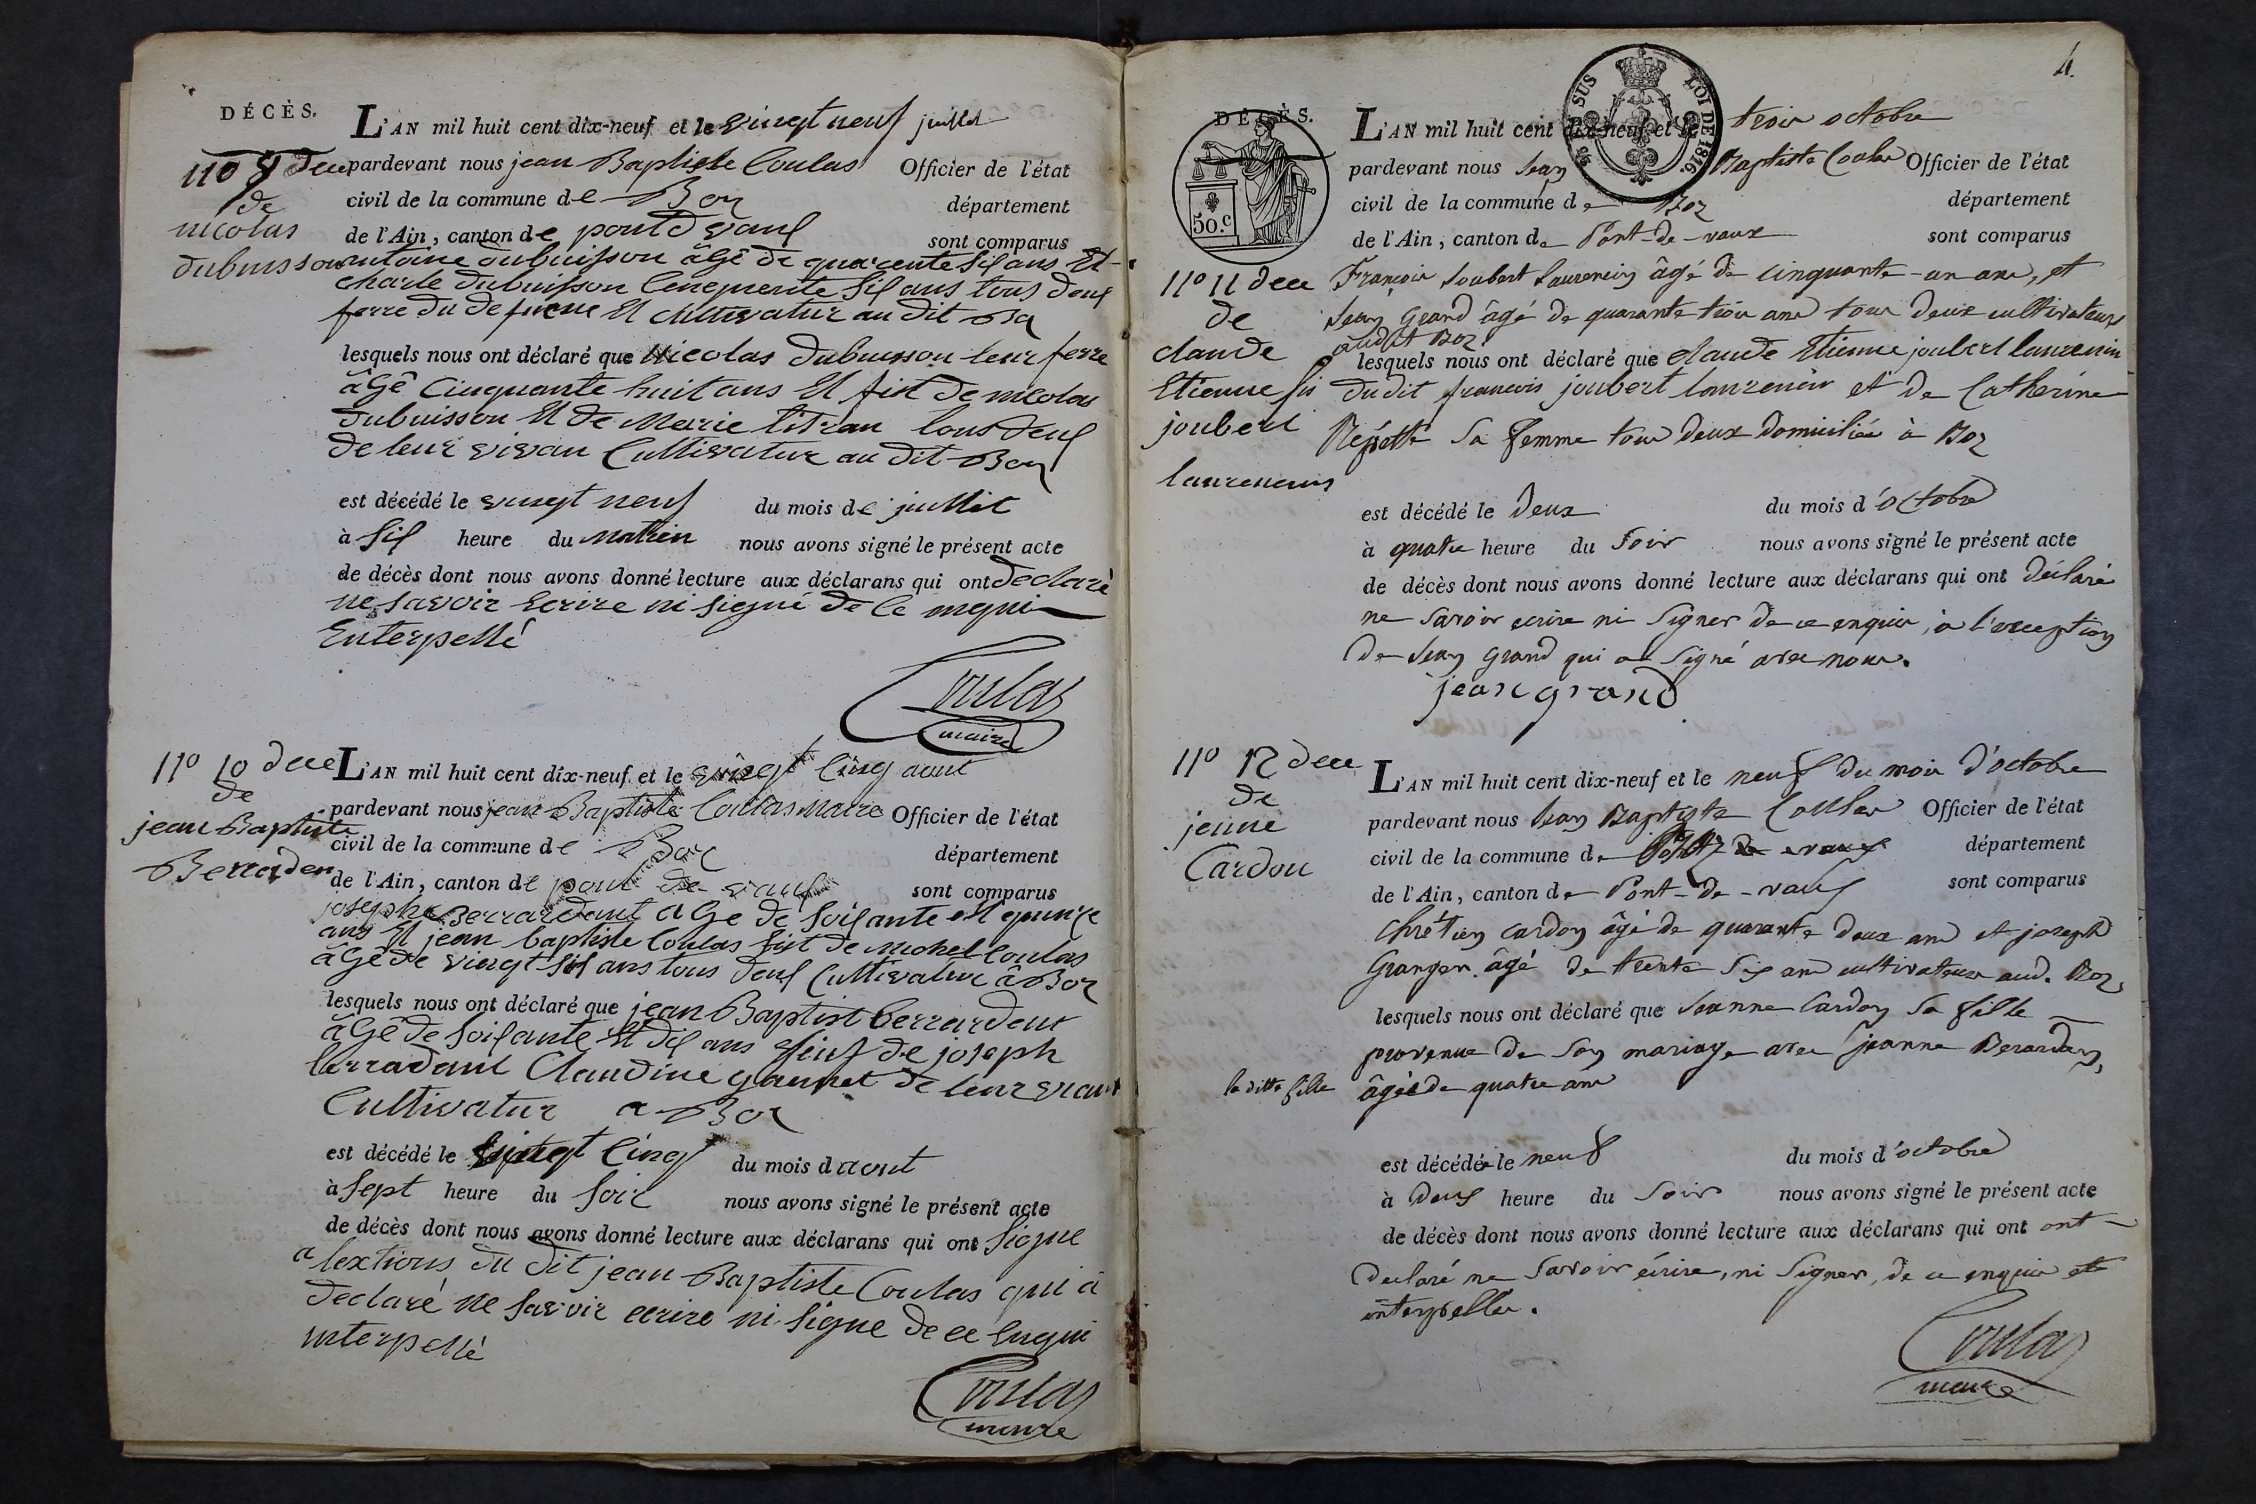 DÉCÈS.
110 9 Dece
de
nicolas
dubuisson
L'AN mil huit cent dix-neuf et le vingt neuf juillet
pardevant nous jean Baptiste Coulas Officier de l'état
civil de la commune de Boz département
de l'Ain, canton de pont de vaux sont comparus
antoine dubuisson âGê de quarente sis ans Et
charle dubuisson Cinquente sis ans tous deus
ferre du de funne Et Cultivatur au dit Boz
lesquels nous ont déclaré que Nicolas dubuisson leur ferre
âGê Cinquante huit ans Et fist de nicolas
dubuisson Et de Marie titran tous deus
de leur vivan Cultivatur au dit Boz
est décédé le vingt neuf du mois de juillit
à sis heure du Matien nous avons signé le présent acte
de décès dont nous avons donné lecture aux déclarans qui ont declarè
ne savoir Ecrire ni signé de Ce enqui
Enterpellé
Coulas
maire
110 10 dece
de
jean Baptiste
Berrarden
L'AN mil huit cent dix-neuf et le vingt Cinq aout
pardevant nous jean Baptiste Coulas maire Officier de l'état
civil de la commune de Boz département
de l'Ain, canton de pont de vaux sont comparus
josephe Berrardant aGe de soisante et quinze
ans Et jean baptiste Coulas fist de Michel Coulas
âGê de vingt sis ans tous deus Cultivatur â Boz
lesquels nous ont déclaré que jean Baptist berrardent
âGê de soisante Et dis ans feuf de joseph
berradant Claudine gaunet de leur vivant
Cultivatur a Boz
est décédé le vingt Cinq du mois d aout
à sept heure du soir nous avons signé le présent acte
de décès dont nous avons donné lecture aux déclarans qui ont signe
a lextions du dit jean Baptiste Coulas qui a
declaré ne savoir ecrire ni signe de ce enqui
interpellé
Coulas
maire
4.
SUS LOI DE 1816.
DÉCÈS.
50.c
110 11 dece
de
claude
Etienne fis
joubert
laurencins
L'AN mil huit cent dix-neuf et le trois octobre
pardevant nous Jean Baptiste Coulas Officier de l'état
civil de la commune de Boz département
de l'Ain, canton de Pont-de-vaux sont comparus
François Joubert Laurencin âgé de cinquante-un ans, et
Jean Grand âgé de quarante trois ans tous deux cultivateurs
audit Boz
lesquels nous ont déclaré que claude Etienne joubert laurencin
dudit francois joubert laurencin et de Catherine
sa femme tous deux domiciliés à Boz
est décédé le deux du mois d'octobre
à quatre heure du soir nous avons signé le présent acte
de décès dont nous avons donné lecture aux déclarans qui ont déclaré
ne savoir ecrire ni signer de ce enquis, à l'exception
de Jean Grand qui a signé avec nous.
jean grand
110 12 dece
de
jenne
Cardon
L'AN mil huit cent dix-neuf et le neuf du mois d'octobre
pardevant nous Jean Baptiste Coulas Officier de l'état
civil de la commune de Boz département
de l'Ain, canton de Pont-de-vaux sont comparus
Chrétien Cardon âgé de quarante deux ans et joseph
Granger âgé de trente six ans cultivateurs aud. Boz,
lesquels nous ont déclaré que Jeanne Cardon sa fille
provenue de son mariage avec jeanne Berardan,
la ditte fille âgée de quatre ans
est décédée le neuf du mois d'octobre
à deux heure du soir nous avons signé le présent acte
de décès dont nous avons donné lecture aux déclarans qui ont ont
declaré ne savoir écrire, ni signer, de ce enquis et
interpellés.
Coulas
maire